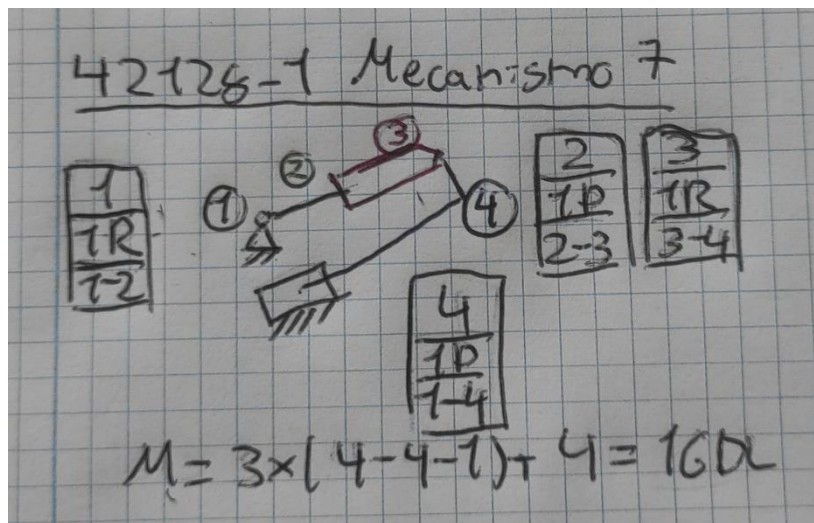 42128-1 Mecanismo 7
1
1R
1-2
1
2
3
4
2
1P
2-3
3
1R
3-4
4
1P
1-4
M = 3×(4-4-1)+ 4 = 1GDL